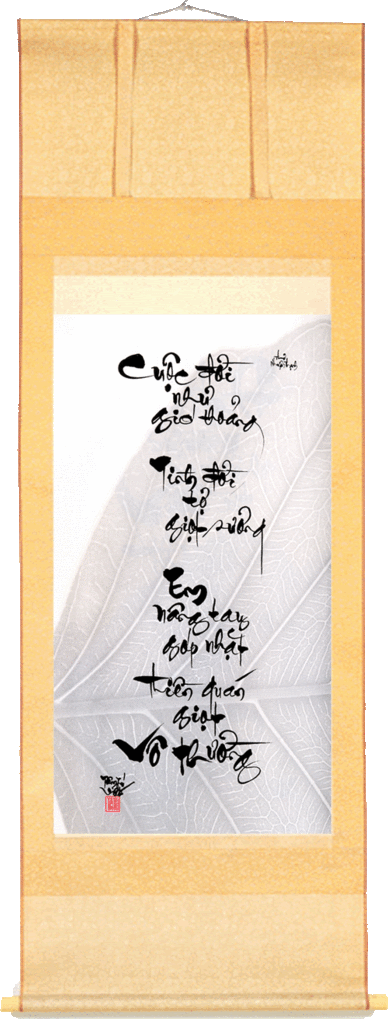 Cuộc đời
như
gió thoảng
Tình đời
tợ
giọt sương
Em
nâng tay
góp nhặt
thiền quán
giọt
Vô thường